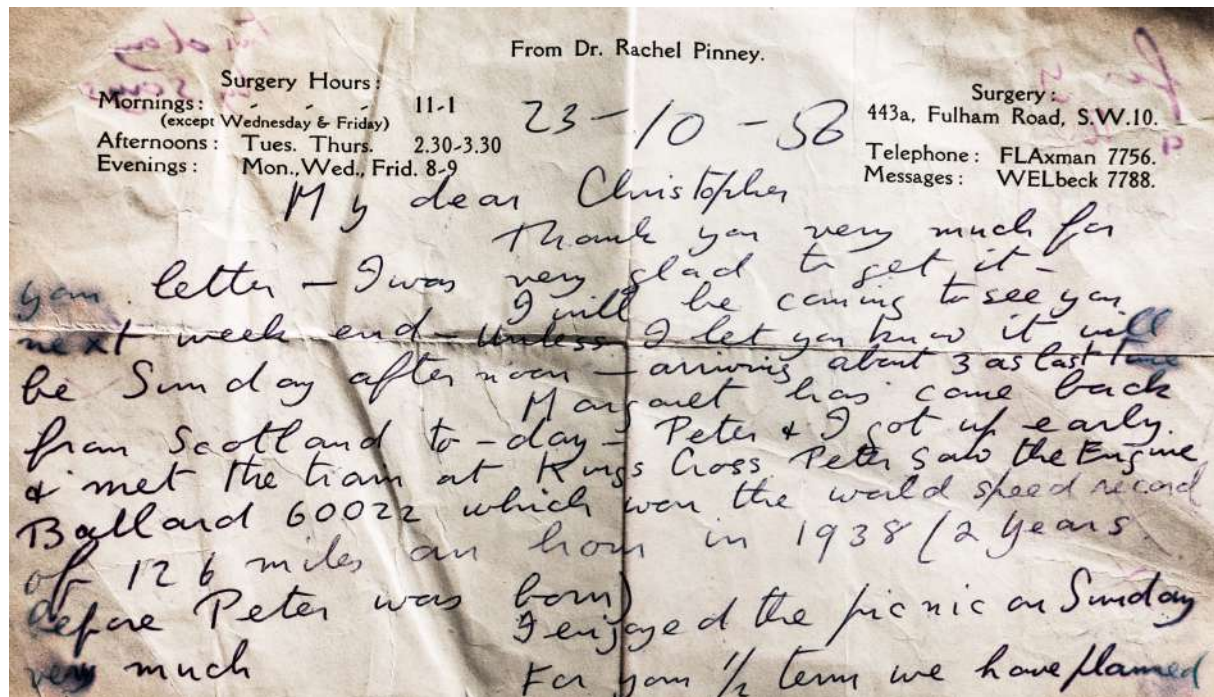 From Dr. Rachel Pinney.
Surgery Hours:
Mornings: - - - 11-1
(except Wednesday & Friday)
Afternoons: Tues. Thurs. 2.30-3.30
Evenings: Mon., Wed., Frid. 8-9
Surgery:
443a, Fulham Road, S.W.10.
Telephone: FLAxman 7756.
Messages: WELbeck 7788.
23-10-56
My dear Christopher
Thank you very much for
your letter - I was very glad to get it -
I will be coming to see you
next week end - Unless I let you know it will
be Sunday afternoon - arriving about 3 as last time
Margaret has come back
from Scotland to-day - Peter & I got up early.
& met the train at Kings Cross Peter saw the Engine
Ballard 60022 which won the world speed record
of 126 miles an hour in 1938 (2 years
before Peter was born)
I enjoyed the picnic on Sunday
very much
For your 1/2 term we have planned